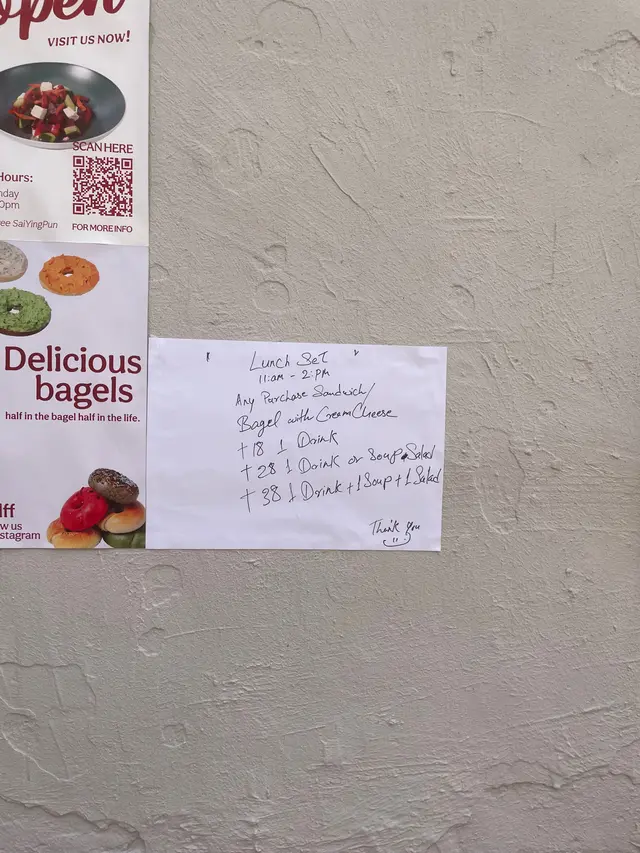 open
VISIT US NOW!
SCAN HERE
Hours:
nday
0pm
ee SaiYingPun
FOR MORE INFO
Delicious
bagels
half in the bagel half in the life.
lff
w us
stagram
Lunch Set
11:am - 2:pm
Any Purchase Sandwich/
Bagel with Cream Cheese
+18 1 Drink
+28 1 Drink or Soup Salad
+38 1 Drink + 1 Soup + 1 Salad
Thank you